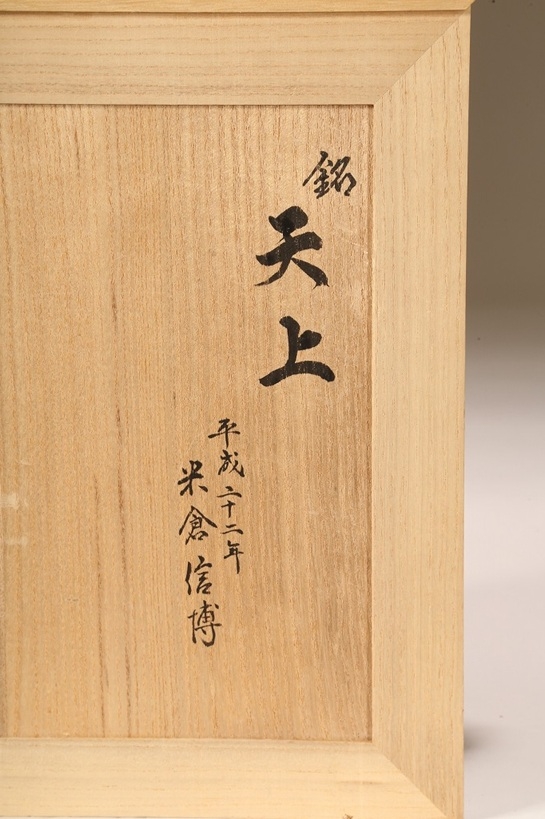 銘
天上
平成二十二年
米倉信博